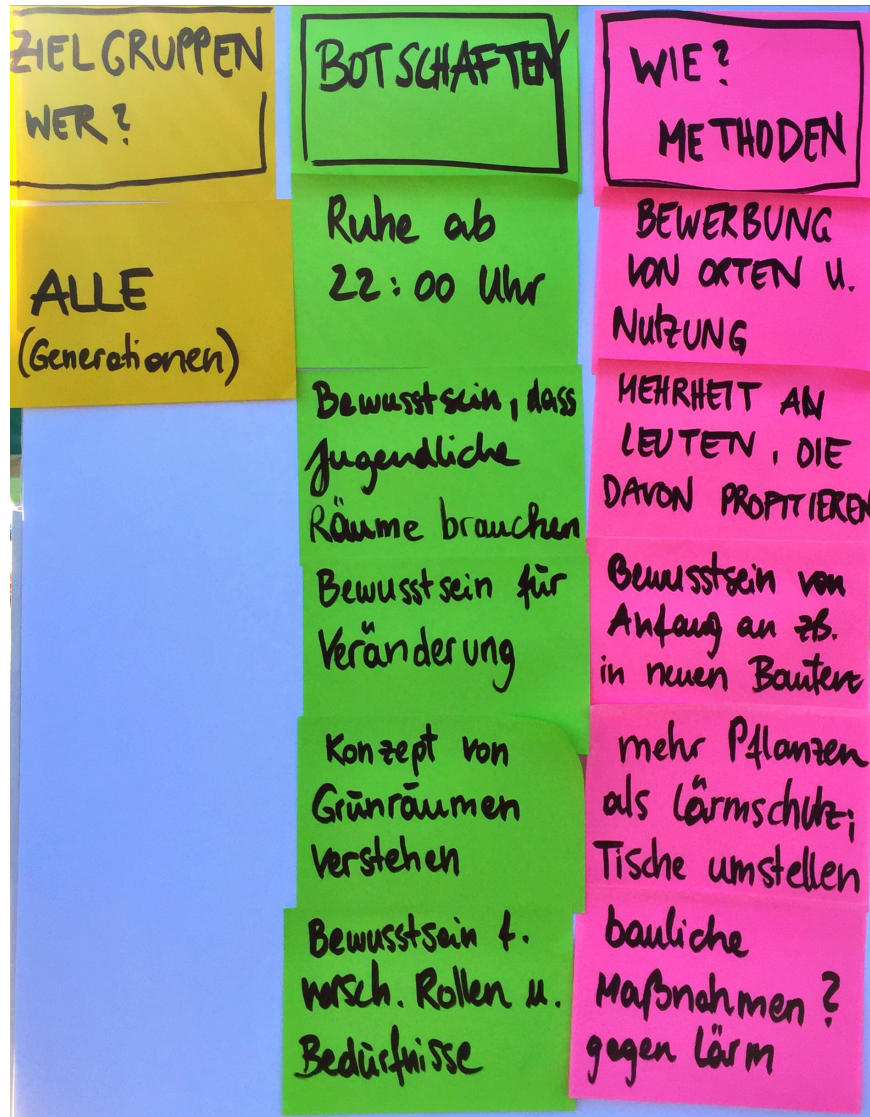 ZIELGRUPPEN
WER?
ALLE
(Generationen)
BOTSCHAFTEN
Ruhe ab
22:00 Uhr
Bewusstsein, dass
Jugendliche
Räume brauchen
Bewusstsein für
Veränderung
Konzept von
Grünräumen
verstehen
Bewusstsein f.
versch. Rollen u.
Bedürfnisse
WIE?
METHODEN
BEWERBUNG
VON ORTEN U.
NUTZUNG
MEHRHEIT AN
LEUTEN, DIE
DAVON PROFITIEREN
Bewusstsein von
Anfang an zB.
in neuen Bauten
mehr Pflanzen
als Lärmschutz;
Tische umstellen
bauliche
Maßnahmen?
gegen Lärm